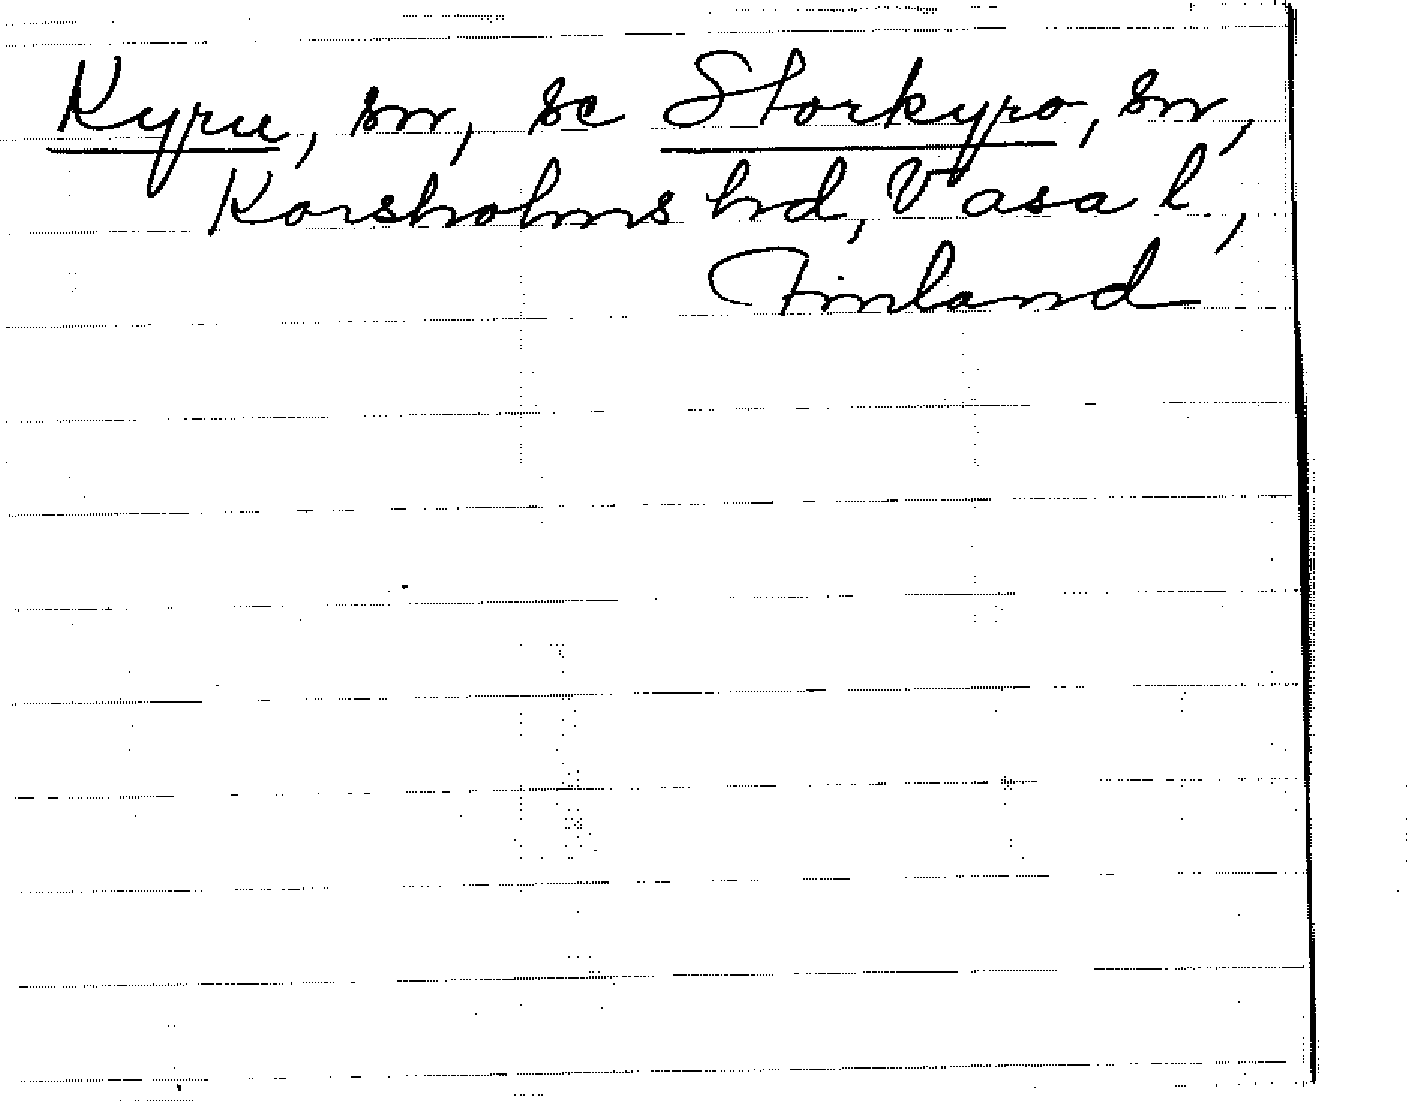 Kyru, sn, se Storkyro, sn,
Korsholms hd, Vasa l.,
Finland